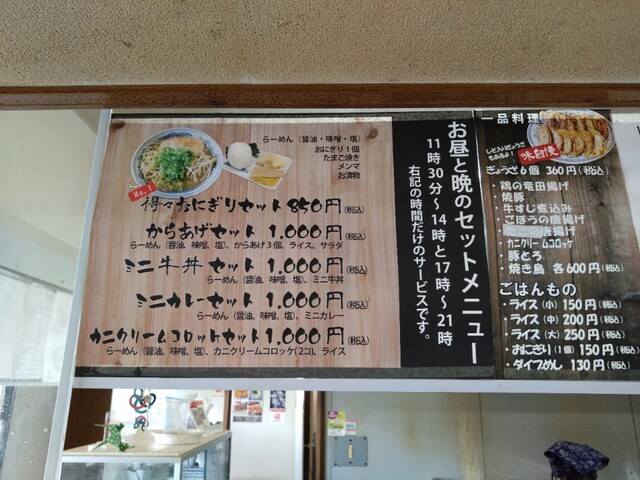 らーめん（醤油・味噌・塩）
おにぎり１個
たまご焼き
メンマ
お漬物
No.1
得々おにぎりセット 850円(税込)
からあげセット 1,000円(税込)
らーめん（醤油、味噌、塩）、からあげ３個、ライス、サラダ
ミニ牛丼セット 1,000円(税込)
らーめん（醤油、味噌、塩）、ミニ牛丼
ミニカレーセット 1,000円(税込)
らーめん（醤油、味噌、塩）、ミニカレー
カニクリームコロッケセット 1,000円(税込)
らーめん（醤油、味噌、塩）、カニクリームコロッケ(2コ)、ライス
お昼と晩のセットメニュー
11時30分〜14時と17時〜21時
右記の時間だけのサービスです。
一品料理
味自慢
ぎょうざ６個 360円(税込)
・鶏の竜田揚げ
・焼豚
・牛すじ煮込み
・ごぼうの唐揚げ
の唐揚げ
・カニクリームコロッケ
・豚とろ
・焼き鳥 各600円(税込)
ごはんもの
・ライス（小）150円(税込)
・ライス（中）200円(税込)
・ライス（大）250円(税込)
・おにぎり（1個）150円(税込)
・ダイブめし 130円(税込)